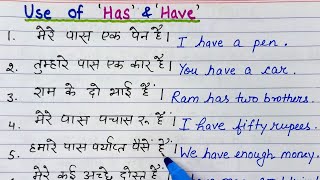 Use of 'Has' & 'Have'
1. मेरे पास एक पेन है। I have a pen.
2. तुम्हारे पास एक कार है। You have a car.
3. राम के दो भाई हैं। Ram has two brothers.
4. मेरे पास पचास रू॰ हैं। I have fifty rupees.
5. हमारे पास पर्याप्त पैसे हैं। We have enough money.
मेरे कई अच्छे दोस्त हैं